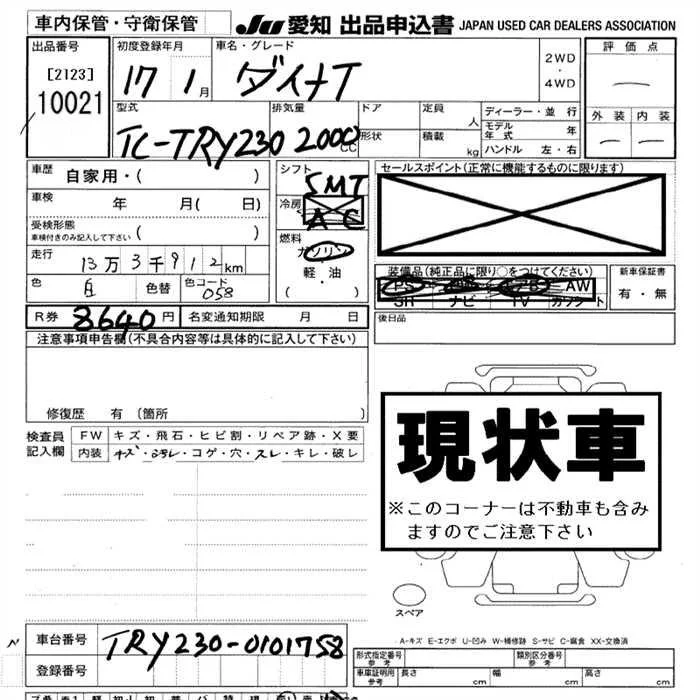 車内保管・守衛保管
JU 愛知 出品申込書 JAPAN USED CAR DEALERS ASSOCIATION
出品番号
[2123]
10021
初度登録年月
17 1月
車名・グレード
ダイナT
2WD
・
4WD
評価点
外装 内装
型式
TC-TRY230
排気量
2000 CC
ドア
形状
定員 人
積載 kg
ディーラー・並行
モデル年式 年
ハンドル 左・右
車歴 自家用・( )
車検 年 月( 日)
受検形態
車検付きのみ記入して下さい ( )
走行 13万3千912km
色 白 色替 色コード 058
シフト
5MT
冷房
AC
燃料
ガソリン
・
軽・油
( )
セールスポイント(正常に機能するものに限ります)
装備品(純正品に限り○をつけてください)
PS AW
SH ナビ TV カセット
新車保証書
有・無
R券 8640円 名変通知期限 月 日
後日品
注意事項申告欄(不具合内容等は具体的に記入して下さい)
修復歴 有〔箇所
検査員記入欄
FW キズ・飛石・ヒビ割・リペア跡・X要
内装 キズ・ヨゴレ・コゲ・穴・スレ・キレ・破レ
現状車
※このコーナーは不動車も含み
ますのでご注意下さい
スペア
A-キズ E-エクボ U-凹み W-補修跡 S-サビ C-腐食 XX-交換済
車台番号 TRY230-0101758
登録番号
形式指定番号 参考
類別区分番号 参考
車庫証明用 参考 長さ cm 幅 cm 高さ cm